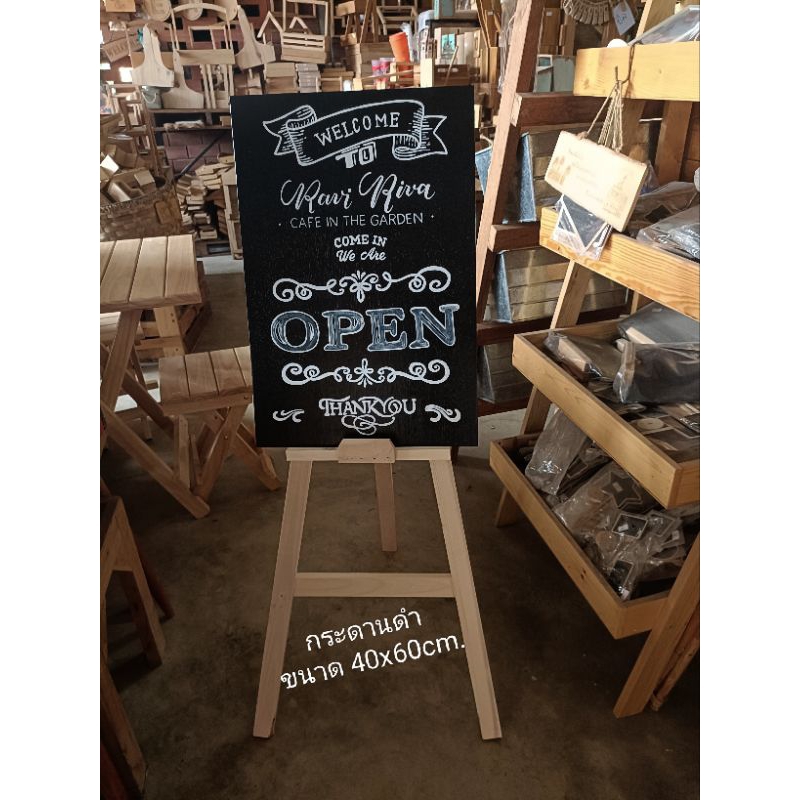 WELCOME
TO
Ravi Riva
· CAFE IN THE GARDEN ·
COME IN
We Are
OPEN
THANKYOU
กระดานดำ
ขนาด 40x60cm.